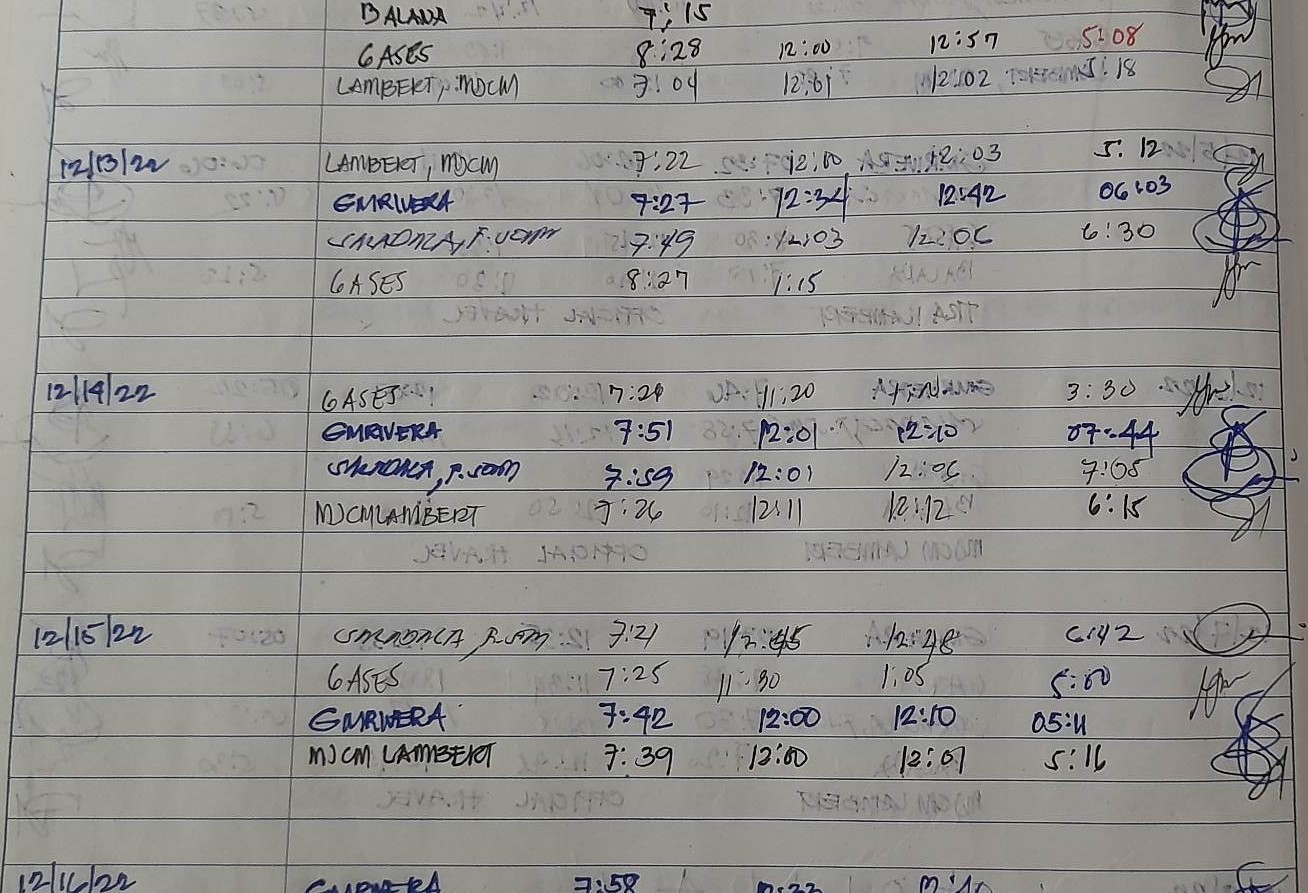 BALANA 7:15
GASES 8:28 12:00 12:57 5:08
LAMBERT, MDCM 7:04 12:01 12:02 5:18
12/13/22 LAMBERT, MDCM 7:22 12:00 12:03 5:12
GMRIVERA 7:27 12:34 12:42 06:03
7:49 12:03 12:06 6:30
GASES 8:27 1:15
12/14/22 GASES 7:29 11:20 3:30
GMRIVERA 7:51 12:01 12:10 07:44
7:59 12:01 12:06 7:05
MJCMLAMBERT 7:26 12:11 12:12 6:15
12/15/22 7:21 12:45 12:48 6:42
GASES 7:25 11:30 1:05 5:00
GMRIVERA 7:42 12:00 12:10 05:11
MJCM LAMBERT 7:39 12:00 12:01 5:16
12/16/22 GMRIVERA 7:58